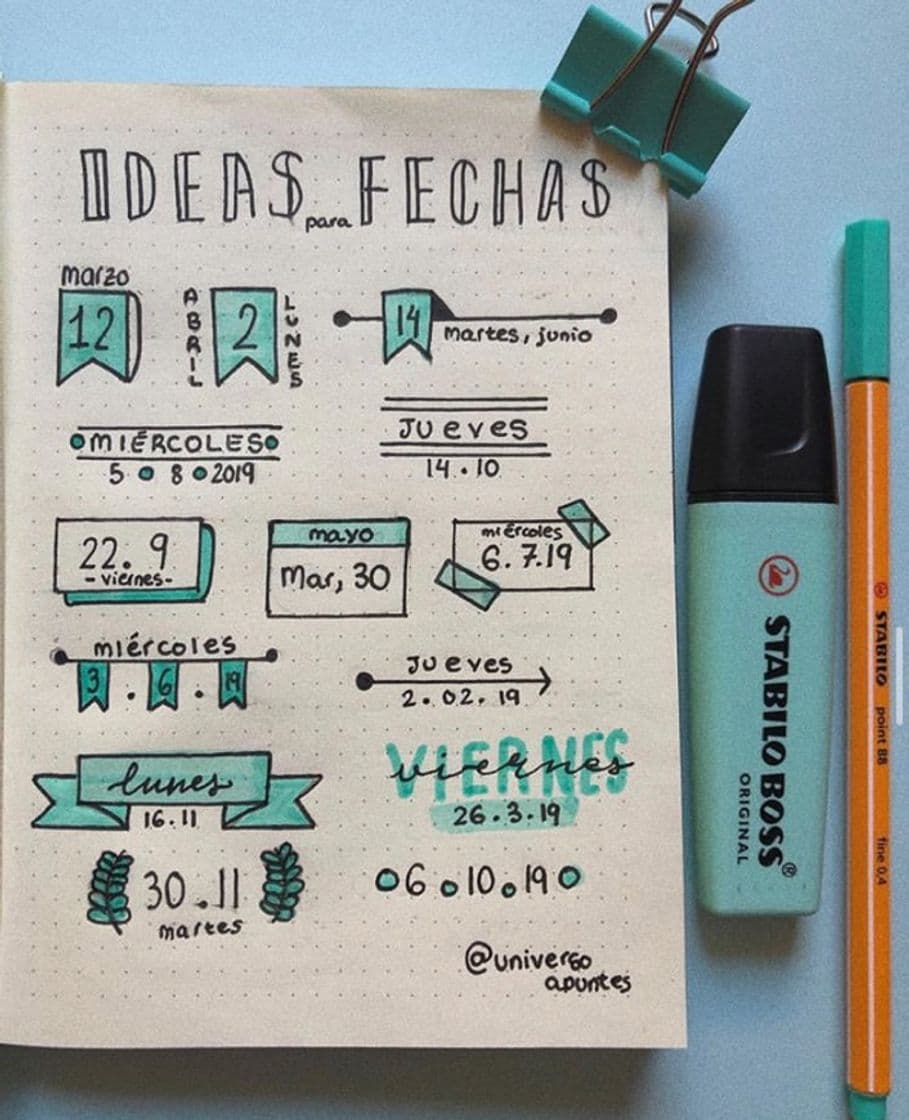 IDEAS para FECHAS
marzo
12
ABRIL
2
LUNES
14
martes, junio
MIÉRCOLES
5 8 2019
JUeves
14.10
22.9
-viernes-
mayo
Mar, 30
miércoles
6.7.19
miércoles
3.6.19
JUeves
2.02.19
lunes
16.11
VIERNES
viernes
26.3.19
30.11
martes
6.10.19
@universo
apuntes
STABILO BOSS®
ORIGINAL
STABILO point 88 fine 0,4